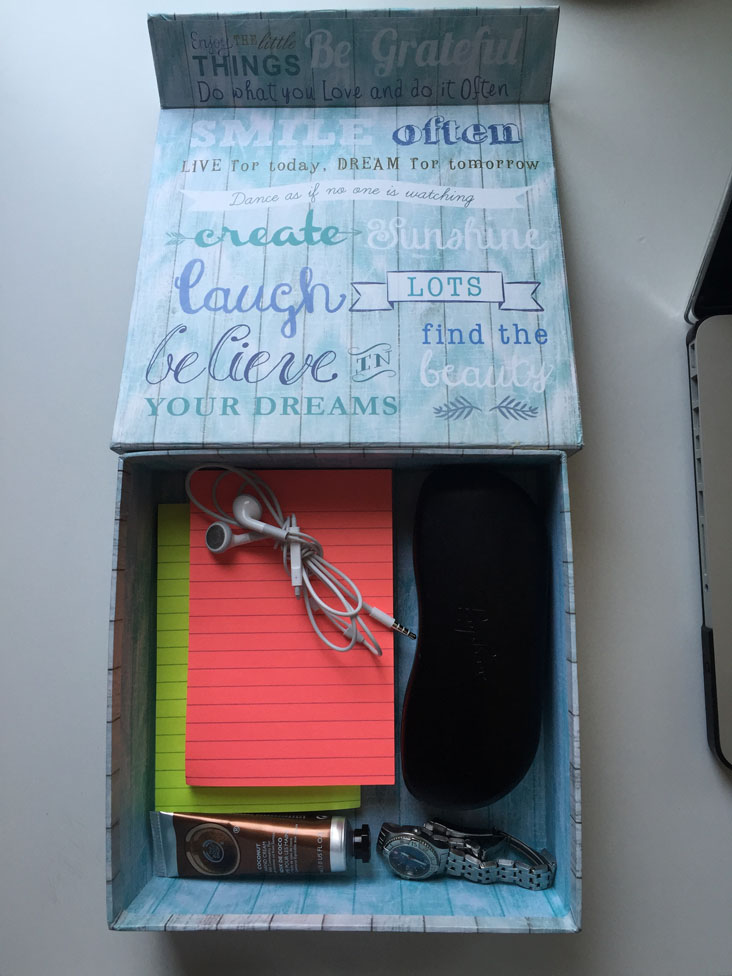 Enjoy THE little
THINGS Be Grateful
Do what you Love and do it Often
SMILE often
LIVE for today, DREAM for tomorrow
Dance as if no one is watching
create Sunshine
laugh LOTS
believe IN find the
beauty
YOUR DREAMS
COCONUT
HAND CREAM